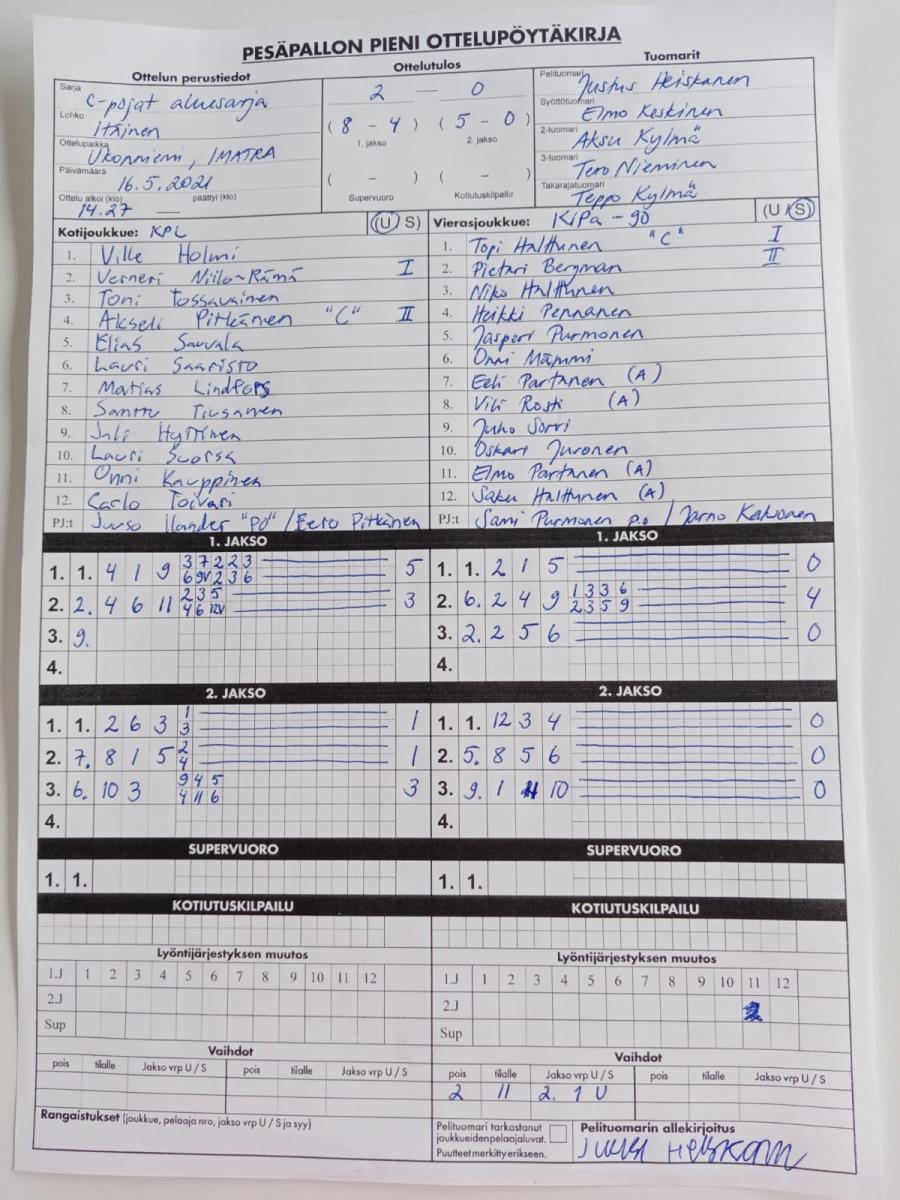 PESÄPALLON PIENI OTTELUPÖYTÄKIRJA
Ottelun perustiedot
Sarja
C-pojat aluesarja
Lohko
Itäinen
Ottelupaikka
Ukonniemi, IMATRA
Päivämäärä
16.5.2021
Ottelu alkoi (klo) päättyi (klo)
14.27 —
Ottelutulos
2 - 0
(8 - 4) (5 - 0)
1. jakso 2. jakso
( - ) ( - )
Supervuoro Kotiutuskilpailu
Tuomarit
Pelituomari
Justus Heiskanen
Syöttötuomari
Elmo Keskinen
2-tuomari
Aksu Kylmä
3-tuomari
Tero Nieminen
Takarajatuomari
Teppo Kylmä
Kotijoukkue: KPL (U/ S)
1. Ville Holmi
2. Verneri Niilo-Rämä I
3. Toni Tossavainen
4. Akseli Pitkänen "C" II
5. Elias Sauvala
6. Lauri Saaristo
7. Matias Lindfors
8. Santtu Tiusanen
9. Juli Hyttinen
10. Lauri Suorsa
11. Onni Kauppinen
12. Carlo Toivari
PJ:t Juuso Ilander "PJ" /Eero Pitkänen
Vierasjoukkue: KiPa-90 (U /S)
1. Topi Halttunen "C" I
2. Pietari Bergman II
3. Niko Halttunen
4. Heikki Pennanen
5. Jasperi Purmonen
6. Onni Mämmi
7. Eeli Partanen (A)
8. Vili Rosti (A)
9. Juho Sorvi
10. Oskari Juronen
11. Elmo Partanen (A)
12. Saku Halttunen (A)
PJ:t Sami Purmonen p.o / Jarno Kakonen
1. JAKSO
1. 1. 4 1 9 3 7 2 2 3 5
6 9V 2 3 6
2. 2. 4 6 11 2 3 5 3
4 6 12V
3. 9.
4.
1. JAKSO
1. 1. 2 1 5 0
2. 6. 2 4 9 1 3 3 6 4
2 3 5 9
3. 2. 2 5 6 0
4.
2. JAKSO
1. 1. 2 6 3 1 1
3
2. 7. 8 1 5 2 1
4
3. 6. 10 3 9 4 5 3
4 11 6
4.
2. JAKSO
1. 1. 12 3 4 0
2. 5. 8 5 6 0
3. 9. 1 11 10 0
4.
SUPERVUORO
1. 1.
SUPERVUORO
1. 1.
KOTIUTUSKILPAILU
KOTIUTUSKILPAILU
Lyöntijärjestyksen muutos
1.J 1 2 3 4 5 6 7 8 9 10 11 12
2.J
Sup
Lyöntijärjestyksen muutos
1.J 1 2 3 4 5 6 7 8 9 10 11 12
2.J
Sup
Vaihdot
pois tilalle Jakso vrp U / S pois tilalle Jakso vrp U / S
Vaihdot
pois tilalle Jakso vrp U / S pois tilalle Jakso vrp U / S
2 11 2. 1 U
Rangaistukset (joukkue, pelaaja nro, jakso vrp U / S ja syy)
Pelituomari tarkastanut
joukkueidenpelaajaluvat.
Puutteet merkitty erikseen.
Pelituomarin allekirjoitus